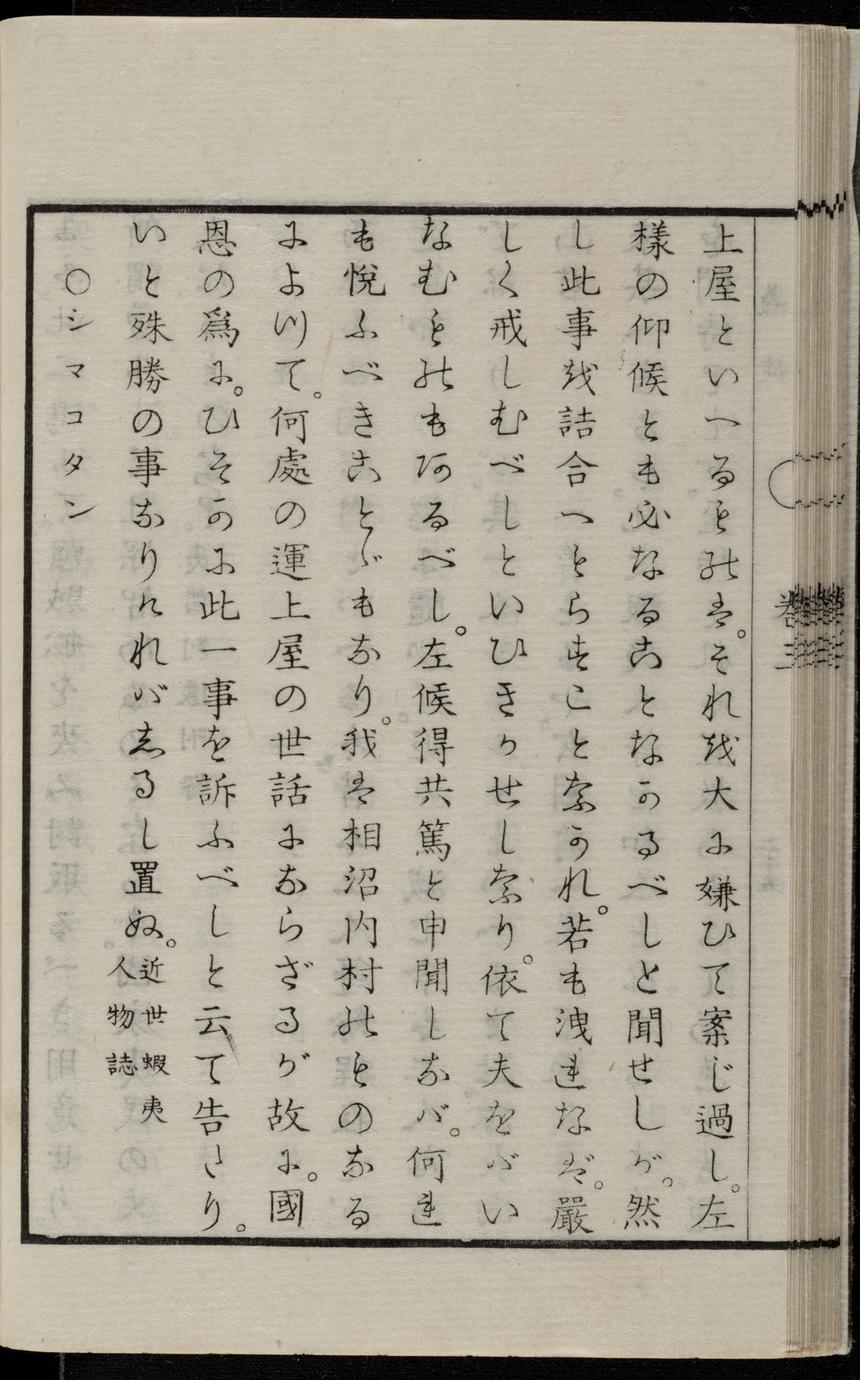 上屋といへるものは。それを大に嫌ひて案じ過し。左
樣の仰候とも必なることなかるべしと聞せしが。然
し此事を詰合へもらすことなかれ。若も洩れなば。嚴
しく戒しむべしといひきかせしなり。依て夫をばい
なむものもあるべし。左候得共篤と申聞しなば。何れ
も悅ふべきことゞもなり。我は相沼内村のものなる
によつて。何處の運上屋の世話にならざるが故に。國
恩の爲に。ひそかに此一事を訴ふべしと云て告たり。
いと殊勝の事なりければしるし置ぬ。近世蝦夷人物誌
○シマコタン
卷三